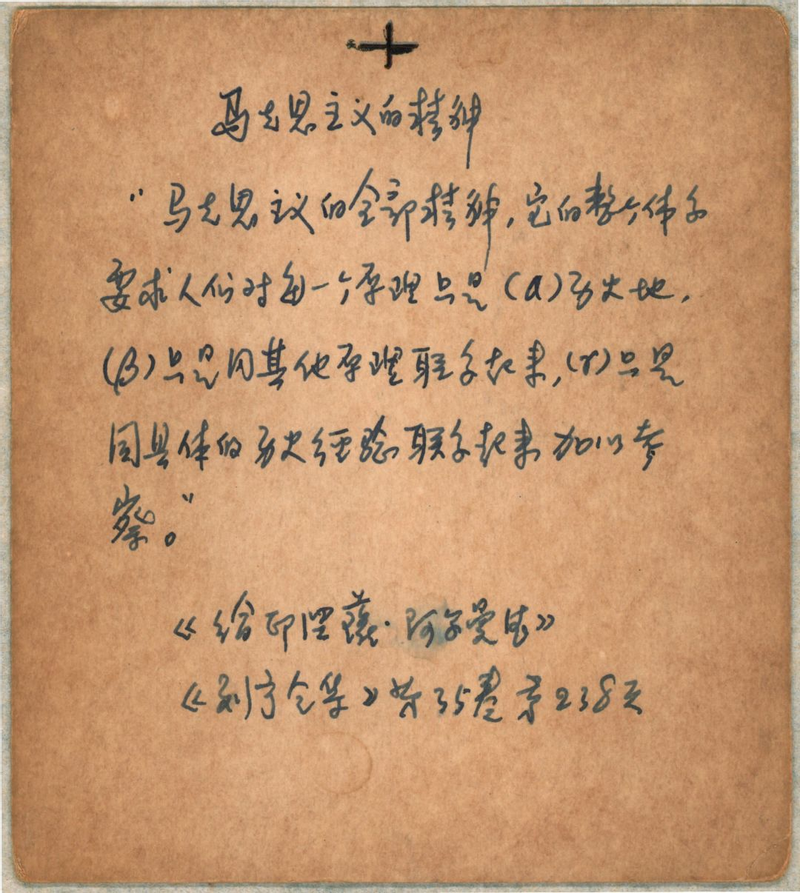 马克思主义的精神
“马克思主义的全部精神,它的整个体系
要求人们对每一个原理只是(α)历史地,
(β)只是同其他原理联系起来,(γ)只是
同具体的历史经验联系起来加以考
察。”
《给印涅萨·阿尔曼德》
《列宁全集》第35卷第238页